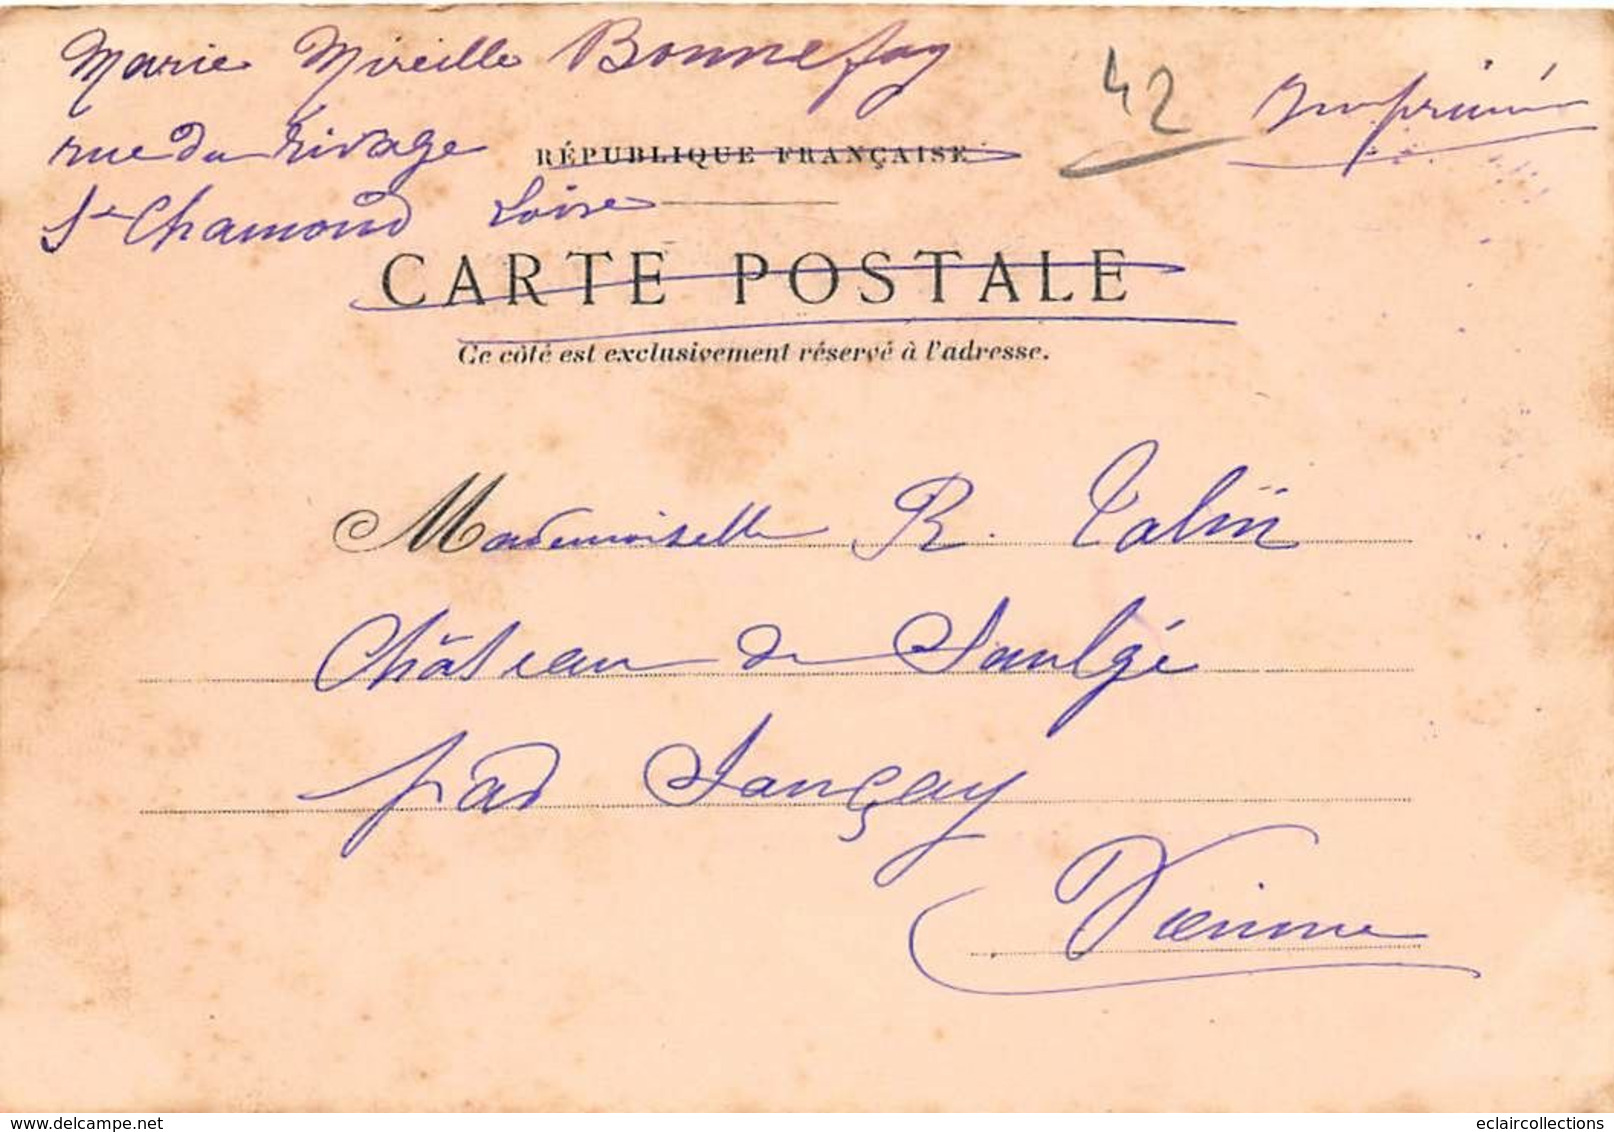 Marie Mireille Bonnefoy
42
Imprimé
rue du Rivage
RÉPUBLIQUE FRANÇAISE
St Chamond Loire
CARTE POSTALE
Ce côté est exclusivement réservé à l'adresse.
Mademoiselle R. Talin
Château de Saulgé
par Sançay
Vienne
www.delcampe.net
eclaircollections